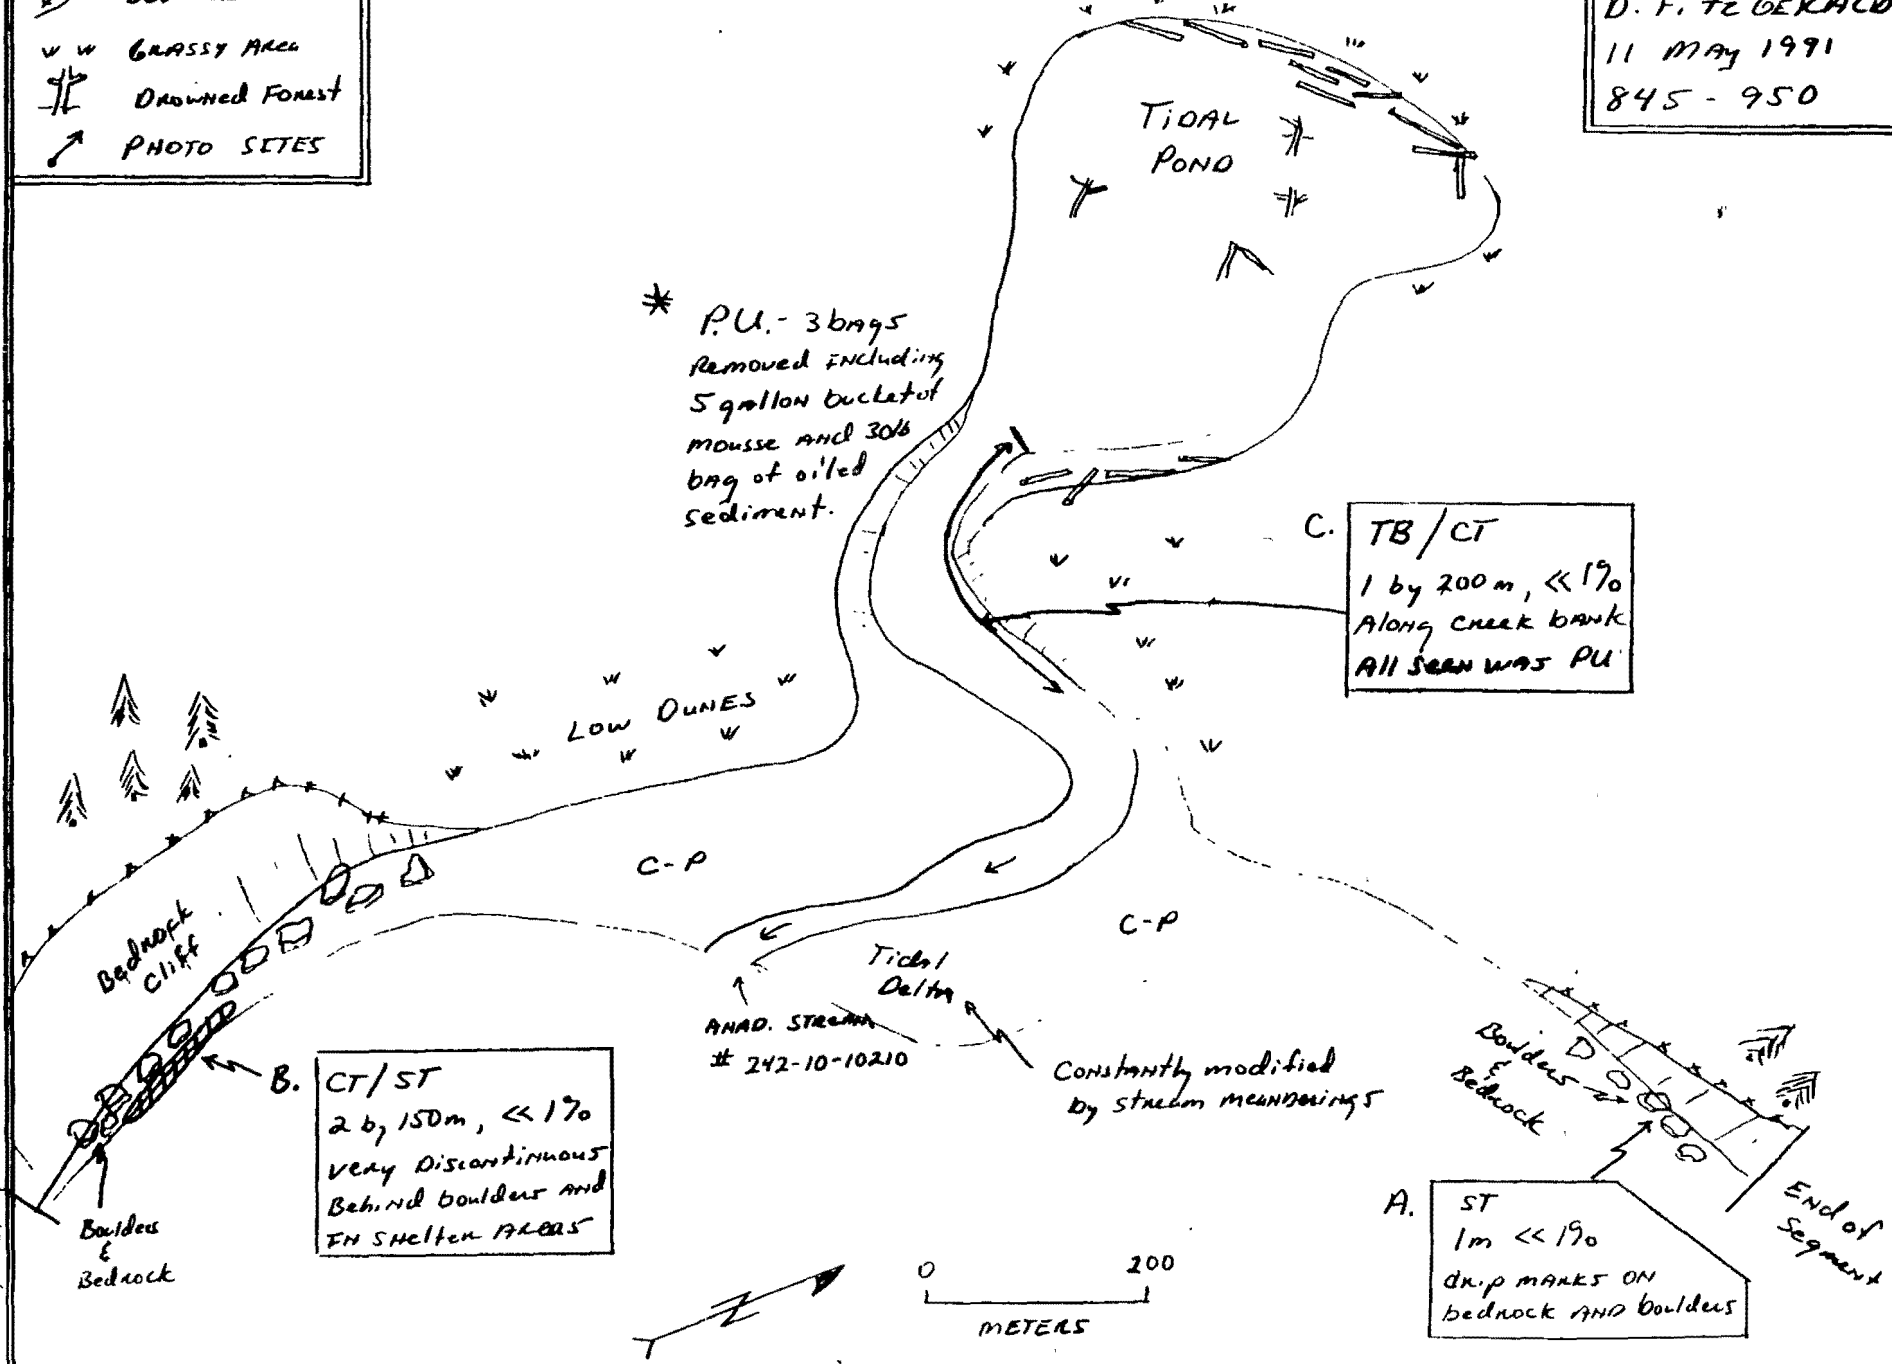 GRASSY AREA
DROWNED FOREST
PHOTO SITES
11 MAY 1991
845 - 950
TIDAL
POND
* P.U. - 3 bags
Removed including
5 gallon bucket of
mousse and 30lb
bag of oiled
sediment.
C.
TB/CT
1 by 200 m, << 1%
Along creek bank
All seen was PU
LOW DUNES
C-P
C-P
Bedrock
Cliff
Tidal
Delta
ANAD. STREAM
# 242-10-10210
Constantly modified
by stream meanderings
Boulders
&
Bedrock
B.
CT/ST
2 by 150m, << 1%
very Discontinuous
Behind boulders and
in shelter areas
Boulders
&
Bedrock
A.
ST
1m << 1%
drip marks on
bedrock and boulders
End of
Segment
N
0 200
METERS